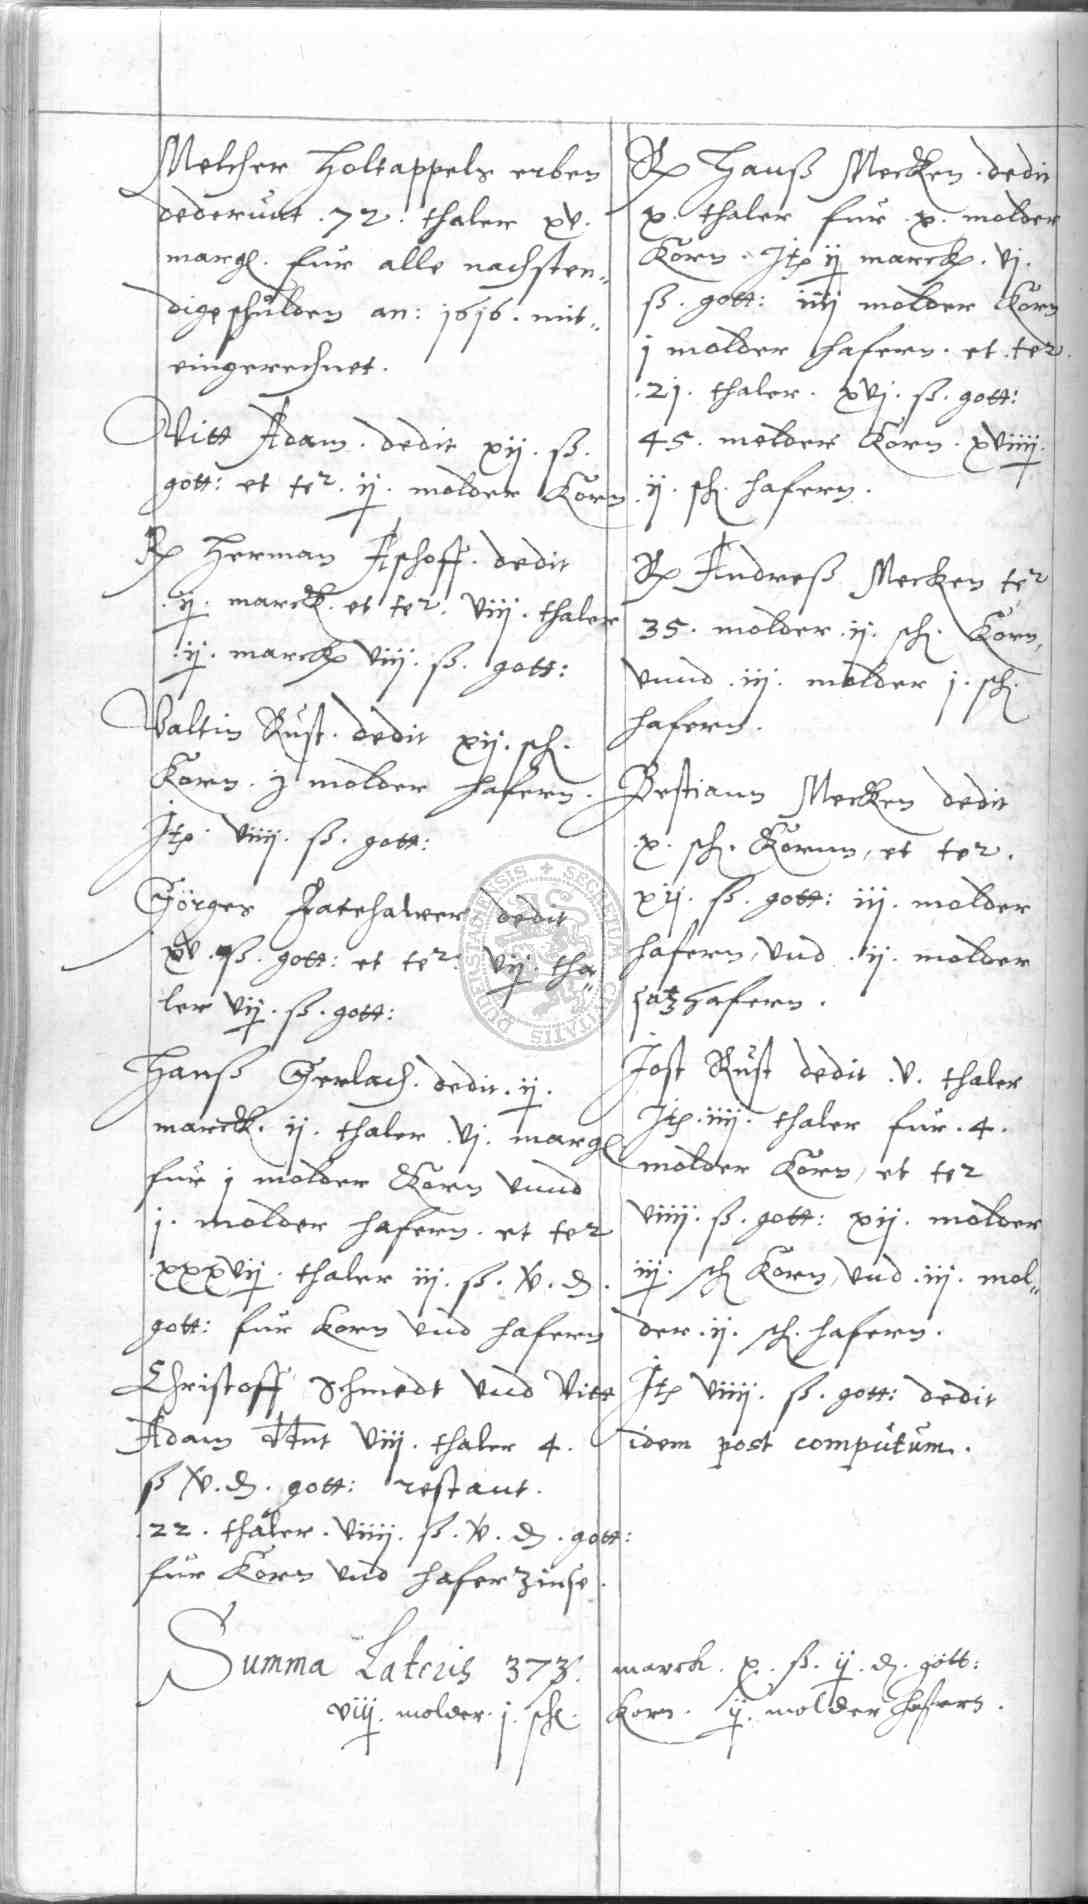 Melcher Holtappels erben
dederunt . 72 . thaler xv.
margk. fur alle nachsten„
dige schulden an: 1616 . mit„
eingerechnet.
Vitt Adam . dedit xij . ß.
gott: et ter . ij . molder Korn
Herman Aschoff . dedit
. ij . marck . et ter . viij . thaler
. ij . marck viij . ß . gott:
Valtin Rust . dedit xij . sch.
Korn . j molder hafern .
Itp. viiij . ß . gott:
Görges dedit
xv . ß . gott: et ter . vij . tha„
ler vij . ß . gott:
Hanß Gerlach . dedit . ij .
marck . ij . thaler . vj . margk
fur j molder Korn vnnd
j . molder hafern . et ter
xxxvij . thaler iij . ß . v . d .
gott: fur korn vnd hafern
Christoff Schmedt vnd Vitt
Adam viij . thaler 4 .
ß v . d . gott: restant .
. 22 . thaler . viiij . ß . v . d . gott:
fur Korn vnd hafer zinse .
Hanß Mecken . dedit
x . thaler fur . x . molder
Korn . Itp ij marck . vj .
ß . gott: iiij molder Korn
j molder hafern . et . ter .
. 21 . thaler . xvj . ß . gott:
45 . molder Korn . xviiij .
. ij . sch . hafern .
Andreß Mecken ter
35 . molder . ij . sch . Korn,
vnnd . iij . molder j . sch.
hafern .
Bestiann Mecken dedit
. x . sch . Kornn, et ter .
xij . ß . gott: iij . molder
hafern, vnd . ij . molder
satzhafern .
Jost Rust dedit . v . thaler
Itp . iiij . thaler fur . 4 .
molder Korn, et ter
viiij . ß . gott: xij . molder
iij . sch Korn, vnd . iij . mol„
der . ij . sch . hafern .
Itp viiij . ß . gott: dedit
idem post computum .
Summa Lateris 373 . marck . x . ß . ij . d . gott:
viij . molder . j . sch . korn . ij . molder hafern .
SECRETUM CIVITATIS DUDERSTADENSIS